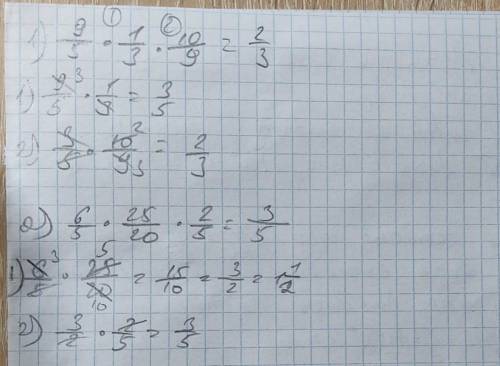 ① ②
1) 9/5 · 1/3 · 10/9 = 2/3
1) 9/5 3 · 1/3 = 3/5
2) 3/5 · 10/9 2 3 = 2/3
2) 6/5 · 25/20 · 2/5 = 3/5
1) 6/5 3 · 25/20 5 10 = 15/10 = 3/2 = 1 1/2
2) 3/2 · 2/5 = 3/5